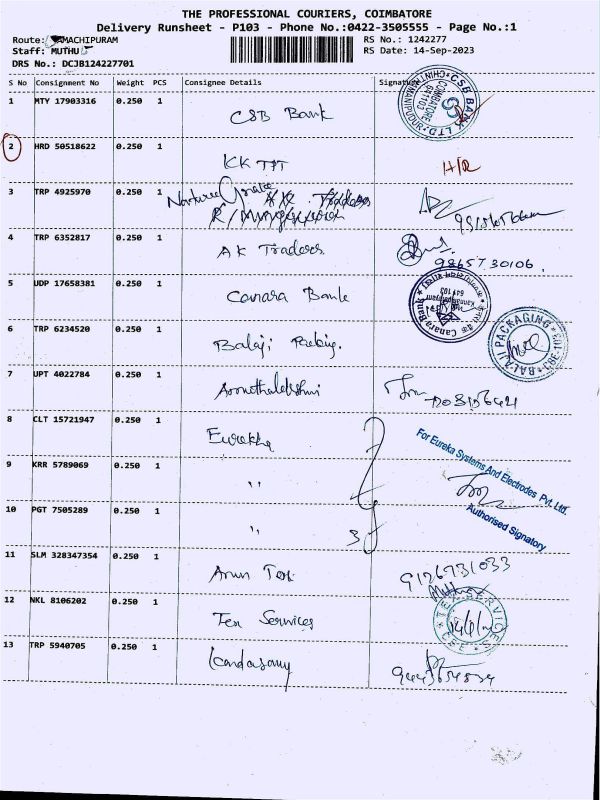 THE PROFESSIONAL COURIERS, COIMBATORE
Delivery Runsheet - P103 - Phone No.:0422-3505555 - Page No.:1
Route: MACHIPURAM RS No.: 1242277
Staff: MUTHU RS Date: 14-Sep-2023
DRS No.: DCJB124227701
S No Consignment No Weight PCS Consignee Details Signature
1 MTY 17903316 0.250 1 CSB Bank
CSB BANK LTD COIMBATORE 641103
2 HRD 50518622 0.250 1 KK TPT H/R
3 TRP 4925970 0.250 1 AK Traders
4 TRP 6352817 0.250 1 AK Traders
9865730106.
5 UDP 17658381 0.250 1 Canara Bank
Canara Bank 641 103
6 TRP 6234520 0.250 1 Balaji Packing.
BALAJI PACKAGING
7 UPT 4022784 0.250 1
8 CLT 15721947 0.250 1 Eurekha
For Eureka Systems And Electrodes Pvt. Ltd.
Authorised Signatory
9 KRR 5789069 0.250 1 "
10 PGT 7505289 0.250 1 " 3
11 SLM 328347354 0.250 1 Arun Tex 9126731033
12 NKL 8106202 0.250 1 Tex Services
TEX SERVICES CBE
13 TRP 5940705 0.250 1 Kandasamy